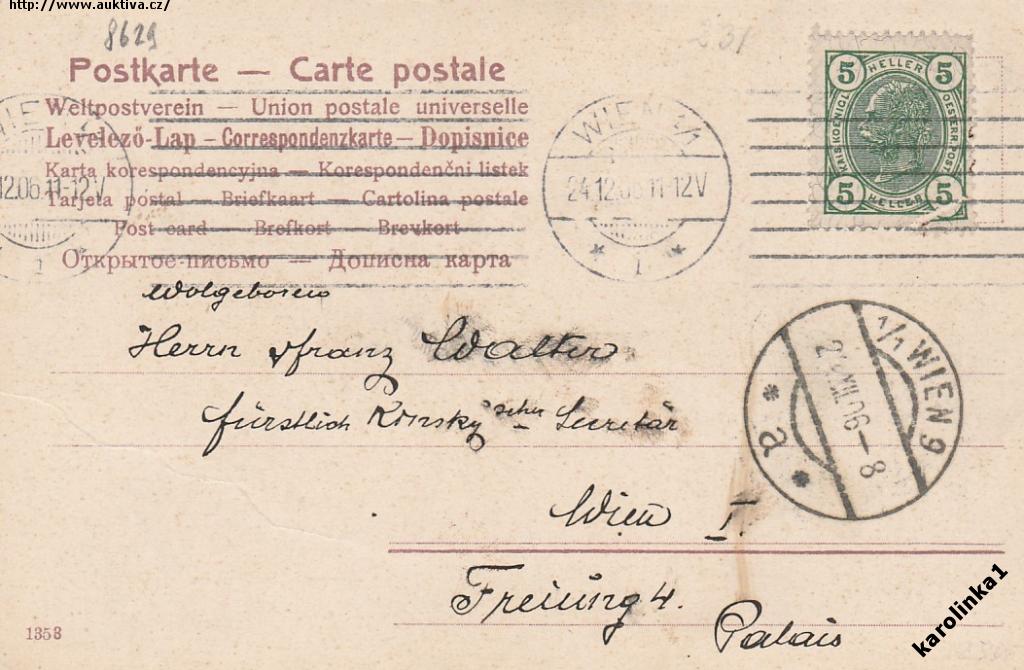 http://www.auktiva.cz/
8629
231
Postkarte — Carte postale
Weltpostverein — Union postale universelle
Levelező-Lap – Correspondenzkarte – Dopisnice
Karta korespondencyjna — Korespondenčni listek
Tarjeta postal — Briefkaart — Cartolina postale
Post card — Brefkort — Brevkort
Открытое письмо — Дописна карта
12.06.11-12V
1
WIEN 1/1
24.12.06.11-12V
* 1 *
5 HELLER 5
KAIS. KÖNIGL. OESTERR. POST
5 HELLER 5
Wolgeboren
Herrn Franz Walter
fürstlich Kinsky'scher Secretär
Wien I.
Freiung 4.
Palais
1/1 WIEN 9
24.XII.06–8
* a *
1358
karolinka1